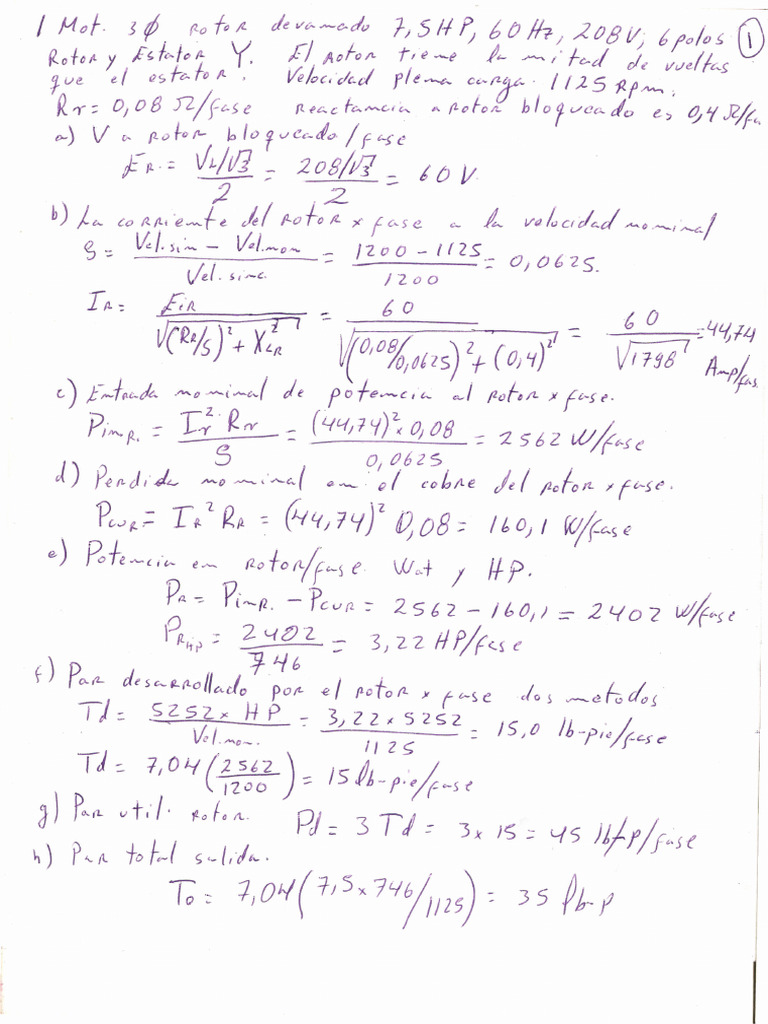 1 Mot. 3Ø rotor devanado 7,5HP, 60Hz, 208V, 6 polos ①
Rotor y Estator Y. El rotor tiene la mitad de vueltas
que el estator. Velocidad plena carga. 1125 Rpm.
Rr = 0,08 Ω/fase reactancia a rotor bloqueado es 0,4 Ω/fa
a) V a rotor bloqueado/fase
ER. = (VL/√3)/2 = (208/√3)/2 = 60 V
b) La corriente del rotor x fase a la velocidad nominal
S = (Vel.sin - Vel.nom)/(Vel.sinc.) = (1200 - 1125)/1200 = 0,0625.
IR = EiR/√((RR/S)² + XLR²) = 60/√((0,08/0,0625)² + (0,4)²) = 60/√1798 = 44,74 Amp/fas
c) Entrada nominal de potencia al rotor x fase.
PinR. = (Ir² Rr)/S = ((44,74)² x 0,08)/0,0625 = 2562 W/fase
d) Perdida nominal en el cobre del rotor x fase.
PcuR = IR² RR = (44,74)² 0,08 = 160,1 W/fase
e) Potencia en rotor/fase Wat y HP.
PR = PinR. - PcuR = 2562 - 160,1 = 2402 W/fase
PRHP = 2402/746 = 3,22 HP/fase
f) Par desarrollado por el rotor x fase dos metodos
Td = (5252 x HP)/(Vel.nom.) = (3,22 x 5252)/1125 = 15,0 lb-pie/fase
Td = 7,04 (2562/1200) = 15 lb-pie/fase
g) Par util. rotor. Pd = 3 Td = 3 x 15 = 45 lb-P/fase
h) Par total salida.
To = 7,04 (7,5 x 746/1125) = 35 lb-P